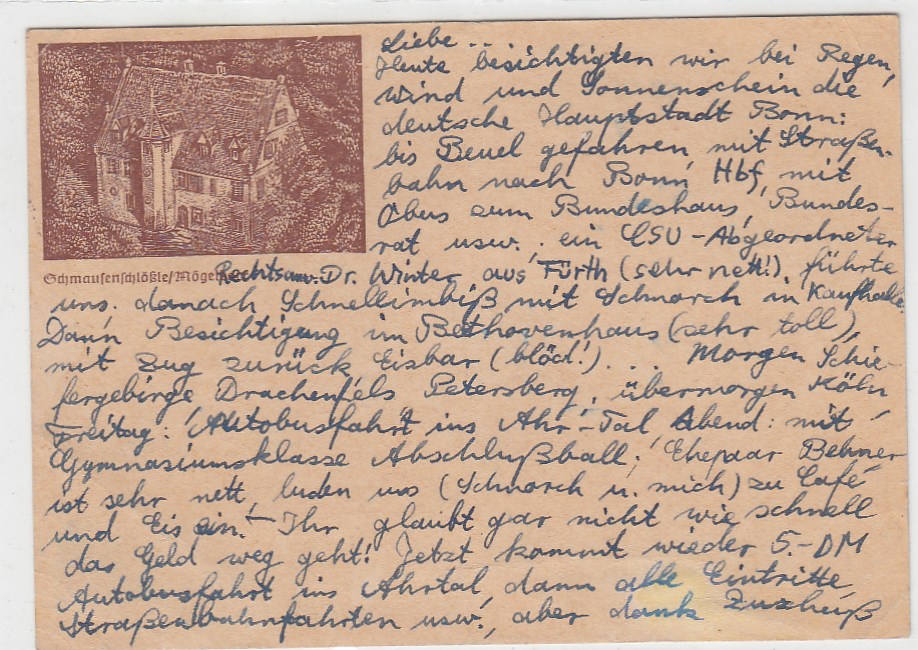 Liebe...
Heute besichtigten wir bei Regen,
Wind und Sonnenschein die
deutsche Hauptstadt Bonn:
bis Beuel gefahren mit Straßen-
bahn nach Bonn Hbf, mit
Obus zum Bundeshaus, Bundes-
rat usw. ein CSU-Abgeordneter
Schmausenschlößle/Möge
Rechtsanw. Dr. Winter aus Fürth (sehr nett!), führte
uns. danach Schnellimbiß mit Schnorch in Kaufhalle.
Dann Besichtigung im Bethovenhaus (sehr toll),
mit Zug zurück Eisbar (blöd!)... Morgen Schie-
fergebirge Drachenfels Petersberg, übermorgen Köln
Freitag: Autobusfahrt ins Ahr-Tal Abend: mit
Gymnasiumsklasse Abschlußball; Ehepaar Behner
ist sehr nett, luden uns (Schnorch u. mich) zu Café
und Eis ein. - Ihr glaubt gar nicht wie schnell
das Geld weg geht! Jetzt kommt wieder 5.-DM
Autobusfahrt ins Ahrtal, dann alle Eintritte
Straßenbahnfahrten usw., aber dank Zuschuß